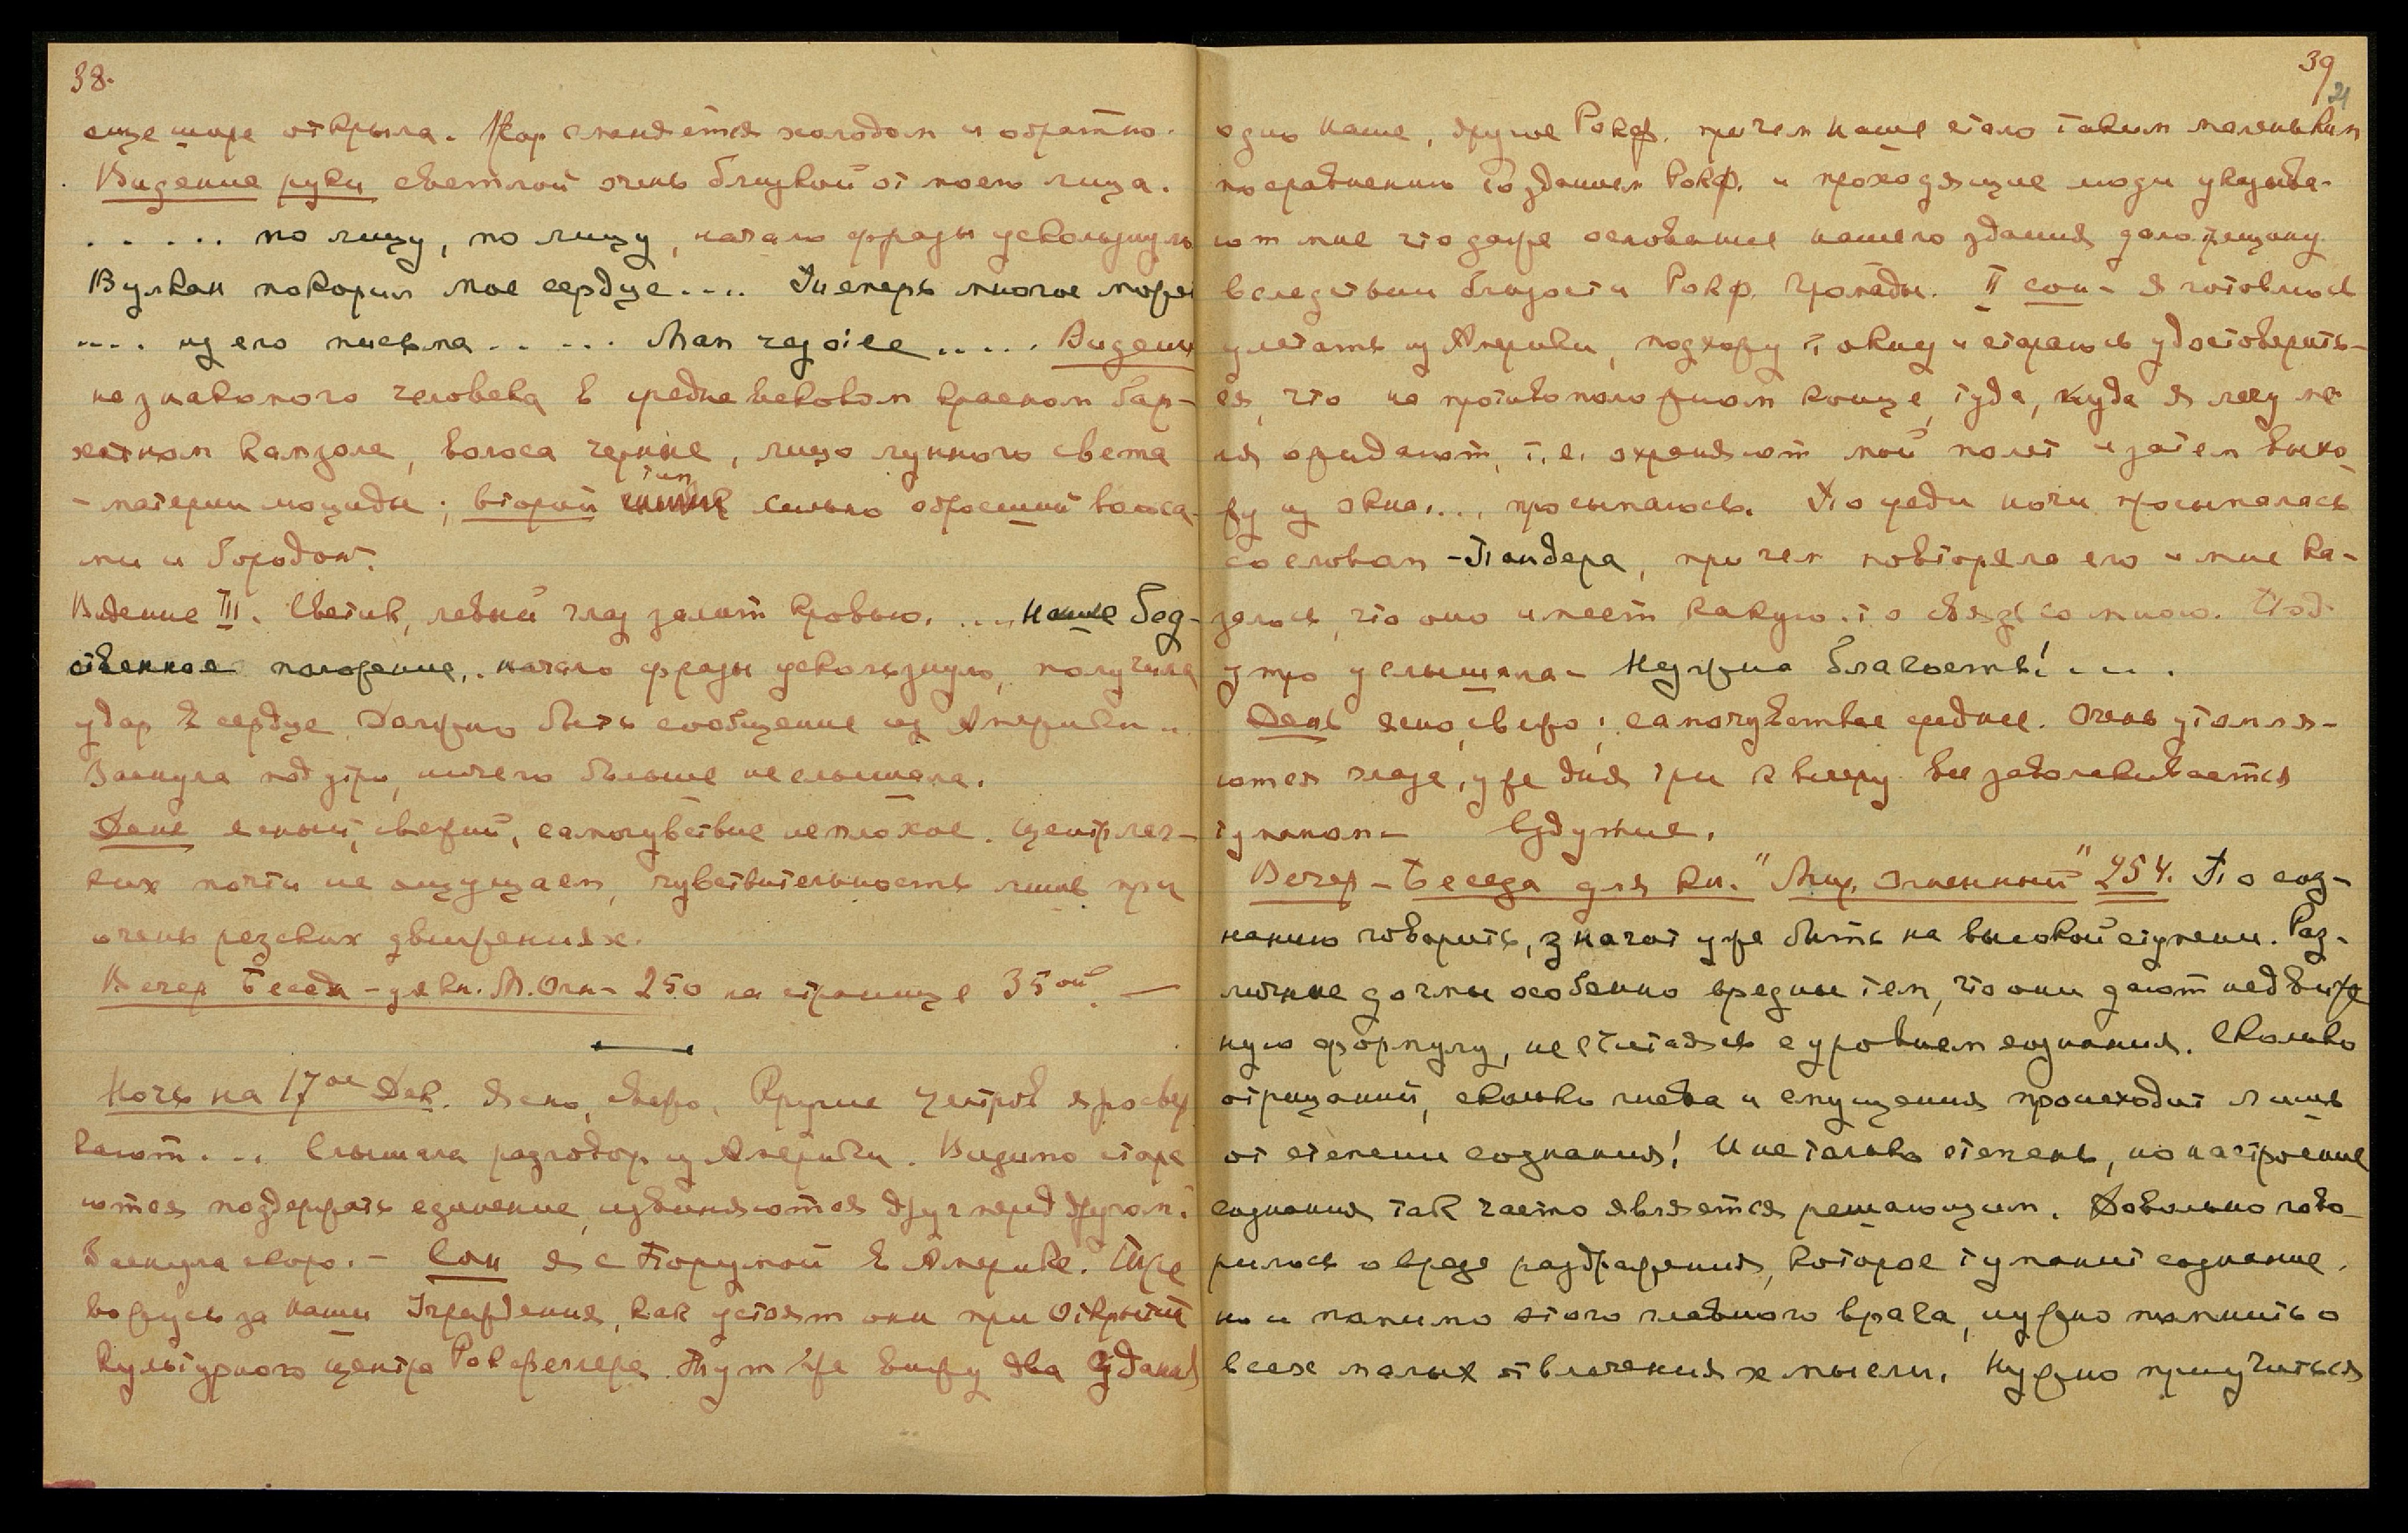 38.
еще шире открыла. Жар сменяется холодом и обратно.
Видение руки светлой очень близкой от моего лица.
. . . . . по лицу, по лицу, начало фразы ускользнуло
Вулкан покорил мое сердце.... Теперь многое
.... из его письма..... Man .....  Видение
незнакомого человека в средневековом красном бар-
хатном камзоле, волоса черные, лицо лунного света
- материи люциды; второй тип сильно обросший волоса-
ми и бородой.
Видение III. Светик, левый глаз залит кровью. .... наше бед-
ственное положение,.. начало фразы ускользнуло, получила
удар в сердце. Должно быть сообщение из Америки..
Заснула под утро, ничего больше не слышала.
День ясный, свежий, самочувствие неплохое. Центр лег-
ких почти не ощущаем, чувствительность лишь при
очень резких движениях.
Вечер Беседа - для кн. М. Огн - 250 на странице 35ой. —
Ночь на 17ое Дек. Ясно, свежо. Кружие центров я
вают... Слышала разговор из Америки. Видимо стара
ются поддержать единение, извиняются друг перед другом.
Заснула скоро. - Сон я с Порумой в Америке. Тре
вожусь за наши Учреждения, как устоят они при открытии
культурного центра Рокфеллера. Тут же вижу два здания
39
21
одно наше, другое Рокф. причем наше стало таким маленьким
по сравнению со зданием Рокф. и проходящие люди указыва-
ют мне что даже основание нашего здания дало трещину
вследствии близости Рокф. громады. II сон - я готовлюсь
улетать из Америки, подхожу к окну и стараюсь удостоверить-
ся, что на противоположном конце, туда, куда я лечу ме
ня ожидают, т.е. охраняют мой полет и затем выхо
жу из окна.... просыпаюсь. Посреди ночи просыпалась
со словом - Пандера, причем повторяла его и мне ка-
залось, что оно имеет какую-то связь со мною. Под
утро услышала - Нужна благость! ... .
День ясно, свежо; самочувствие среднее. Очень утомля-
ются глаза, уже дня три к вечеру все заволакивается
туманом - вздутие.
Вечер - Беседа для кн. "Мир Огненный" 254. По соз-
нанию говорить, значит уже быть на высокой ступени. Раз-
личные догмы особенно вредны тем, что они дают недвиж
ную формулу, не считаясь с уровнем сознания. Сколько
отрицаний, сколько гнева и смущения происходит лишь
от степени сознания! И не только степень, но настроение
сознания так часто является решающим. Довольно гово-
рилось о вреде раздражения, которое туманит сознание,
но и помимо этого главного врага, нужно помнить о
всех малых отвлечениях мысли. Нужно приучиться